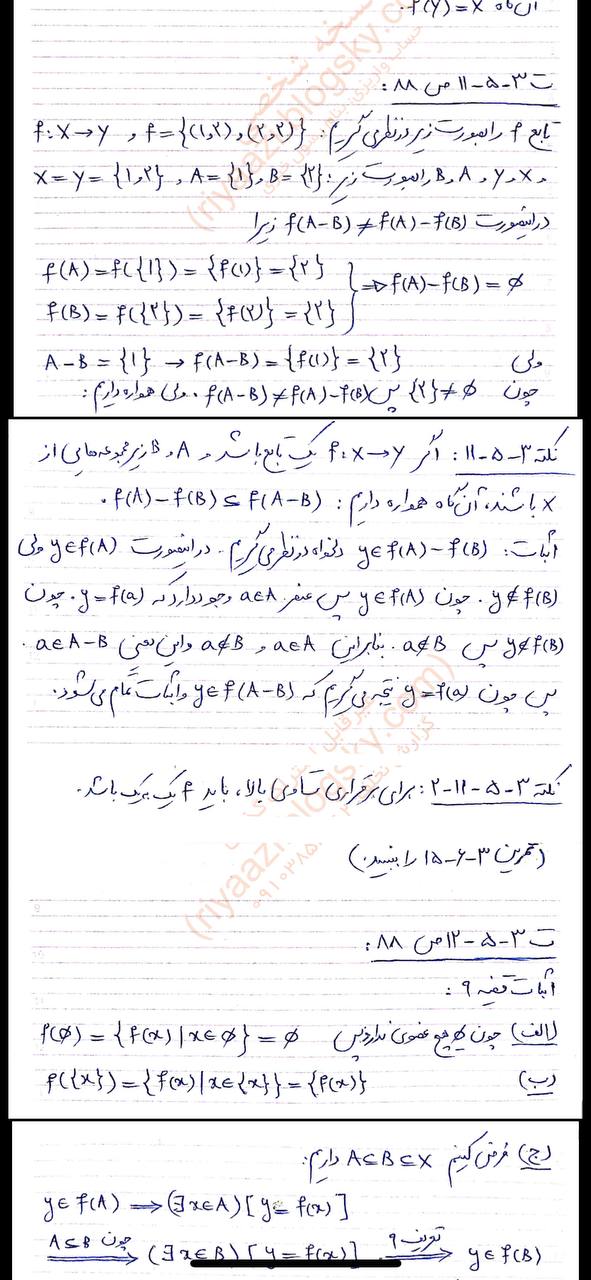 آن‌گاه f(Y)=X.
ت ۳-۵-۱۱ ص ۸۸:
تابع f را بصورت زیر در نظر می‌گیریم: f={(۱,۲),(۲,۲)} و f:X→Y
و X، Y، A و B را بصورت زیر: X=Y={۱,۲} و A={۱} و B={۲}
در اینصورت f(A-B)≠f(A)-f(B) زیرا
f(A)=f({۱})={f(۱)}={۲}
f(B)=f({۲})={f(۲)}={۲} ⇒ f(A)-f(B)=∅
ولی A-B={۱} → f(A-B)={f(۱)}={۲}
چون {۲}≠∅ پس f(A-B)≠f(A)-f(B). ولی همواره داریم:
نکته ۳-۵-۱۱: اگر f:X→Y یک تابع باشد و A و B زیرمجموعه‌هایی از
X باشند، آن‌گاه همواره داریم: f(A)-f(B)⊆f(A-B).
اثبات: y∈f(A)-f(B) دلخواه در نظر می‌گیریم. در اینصورت y∈f(A) ولی
y∉f(B). چون y∈f(A) پس عنصر a∈A وجود دارد که y=f(a). چون
y∉f(B) پس a∉B. بنابراین a∈A و a∉B و این یعنی a∈A-B.
پس چون y=f(a) نتیجه می‌گیریم که y∈f(A-B) و اثبات تمام می‌شود.
نکته ۳-۵-۱۱-۲: برای برقراری تساوی بالا، باید f یک به یک باشد.
(تمرین ۳-۶-۱۵ را ببینید.)
ت ۳-۵-۱۲ ص ۸۸:
اثبات قضیه ۹:
(الف) چون ∅ هیچ عضوی ندارد پس f(∅)={f(x)|x∈∅}=∅
(ب) f({x})={f(x)|x∈{x}}={f(x)}
(ج) فرض کنیم A⊆B⊆X داریم:
y∈f(A) ⟹ (∃x∈A)[y=f(x)]
چون A⊆B ⟹ (∃x∈B)[y=f(x)] تعریف ۹ ⟹ y∈f(B)